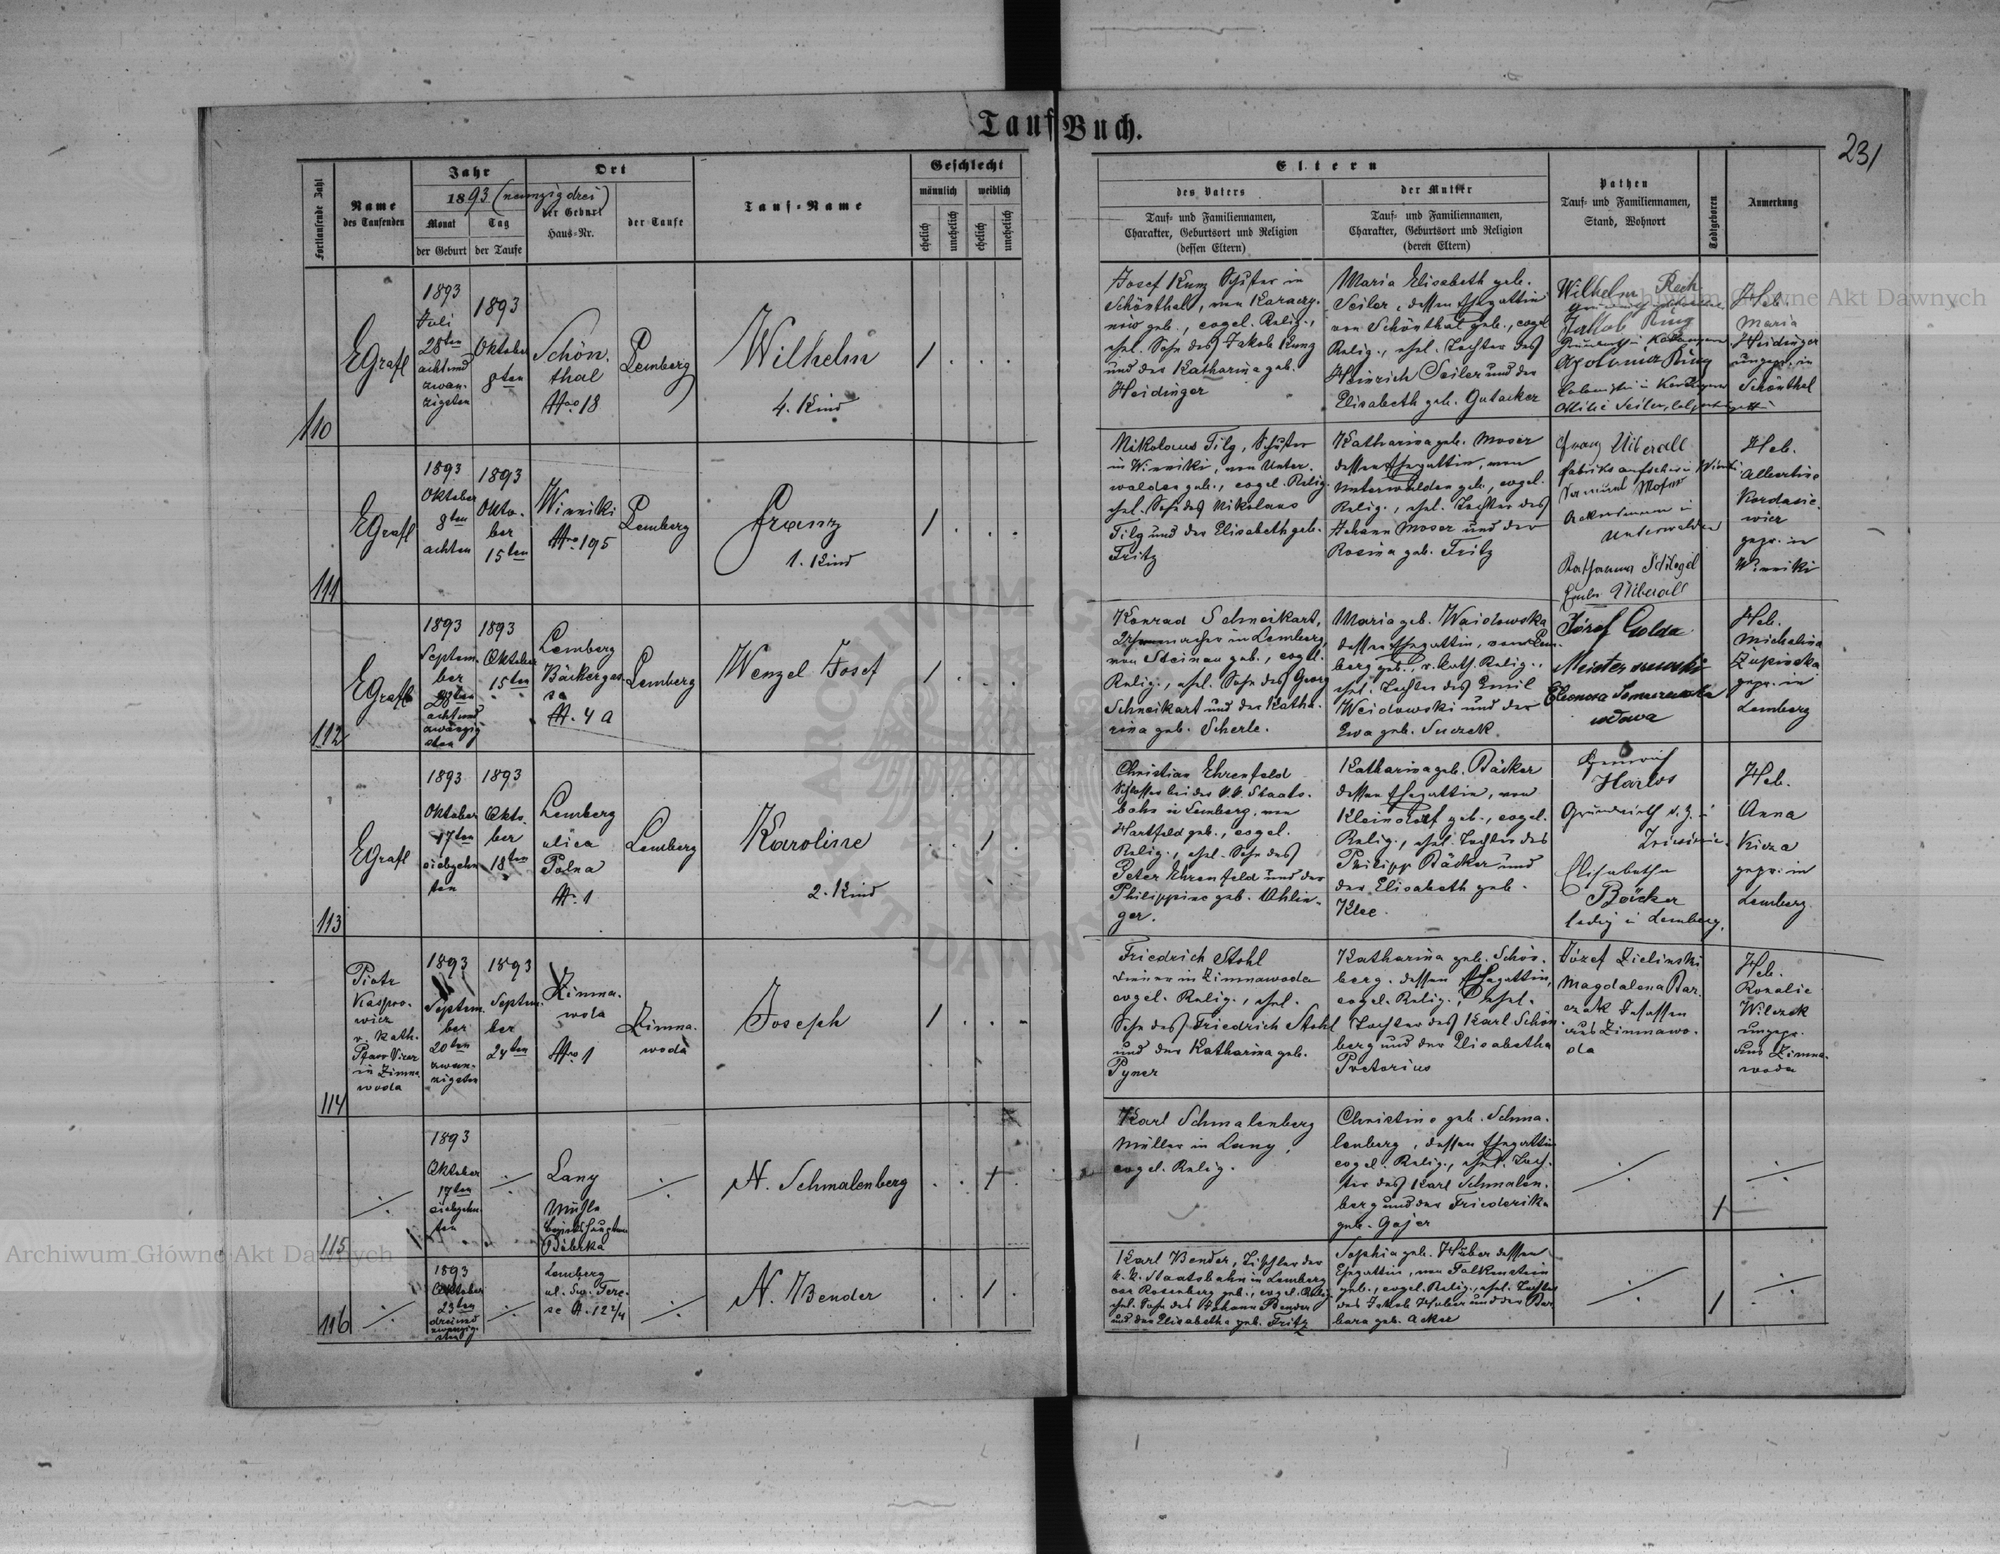 TaufBuch.
231
Fortlaufende Zahl
Name
des Taufenden
Jahr
1893 (neunzigdrei)
Monat
Tag
der Geburt
der Taufe
Ort
der Geburt
Haus=Nr.
der Taufe
Tauf=Name
Geschlecht
männlich
weiblich
ehelich
unehelich
ehelich
unehelich
Eltern
des Vaters
Tauf= und Familiennamen,
Charakter, Geburtsort und Religion
(dessen Eltern)
der Mutter
Tauf= und Familiennamen,
Charakter, Geburtsort und Religion
(deren Eltern)
Pathen
Tauf= und Familiennamen,
Stand, Wohnort
Todtgeboren
Anmerkung
110
EGrafl
1893
Juli
28ten
acht und
zwan-
zigsten
1893
Oktober
8ten
Schön-
thal
Nro 18
Lemberg
Wilhelm
4. Kind
1 . . .
Josef Kunz Schuster in
Schönthal, von Karaczy-
now geb., evgel. Relig.,
ehel. Sohn des Jakob Kunz
und der Katharina geb.
Heidinger
Maria Elisabeth geb.
Seiler, dessen Ehegattin
von Schönthal geb., evgel
Relig., ehel. Tochter des
Heinrich Seiler und der
Elisabeth geb. Gutacker
Wilhelm Rech
Jakob Ring
Apolonia Ring
Heb.
Maria
Heidinger
ungepr. in
Schönthal
111
EGrafl
1893
Oktober
8ten
achten
1893
Okto-
ber
15ten
Winniki
Nro 195
Lemberg
Franz
1. Kind
1 . . .
Nikolaus Filg, Schuster
in Winniki, von Unter-
walden geb., evgel. Relig.
ehel. Sohn des Nikolaus
Filg und der Elisabeth geb.
Fritz
Katharina geb. Moser
dessen Ehegattin, von
Unterwalden geb., evgel.
Relig., ehel. Tochter des
Johann Moser und der
Rosina geb. Fritz
Franz Uiberall
Samuel Moser
Ackersmann in
Unterwalden
Katharina Schlegel
Uiberall
Heb.
Albertine
Kordasie-
wicz
gepr. in
Winniki
112
EGrafl
1893
Septem-
ber
28ten
acht und
zwanzig
sten
1893
Oktober
15ten
Lemberg
Bäckergas-
se
N. 4 a
Lemberg
Wenzel Josef
1 . . .
Konrad Schneikart,
Uhrmacher in Lemberg,
von Steinau geb., evgel.
Relig., ehel. Sohn des Georg
Schneikart und der Katha-
rina geb. Scherle.
Maria geb. Waidowska
dessen Ehegattin, von Lem-
berg geb., r. kath. Relig.,
ehel. Tochter des Emil
Weidowski und der
Ewa geb. Suczek.
Józef Golda
Meister
Eleonora
wdowa
Heb.
Michalina
Zupinska
gepr. in
Lemberg
113
EGrafl
1893
Oktober
17ten
siebzehn
ten
1893
Okto-
ber
18ten
Lemberg
ulica
Polna
N. 1
Lemberg
Karoline
2. Kind
. . 1 .
Christian Ehrenfeld
Schlosser bei der k. k. Staats-
bahn in Lemberg, von
Hartfeld geb., evgel.
Relig., ehel. Sohn des
Peter Ehrenfeld und der
Philippine geb. Ohlin-
ger.
Katharina geb. Bäcker
dessen Ehegattin, von
Kleindorf geb., evgel.
Relig., ehel. Tochter des
Philipp Bäcker und
der Elisabeth geb.
Klee.
Heinrich
Harlos
Elisabetha
Bäcker
ledig in Lemberg.
Heb.
Anna
Kicza
gepr. in
Lemberg
114
Piotr
Kaspro-
wicz
r. kath.
Pfarr Vicar
in Zimna
woda
1893
Septem-
ber
20ten
zwan-
zigsten
1893
Septem-
ber
24ten
Zimna-
woda
Nro 1
Zimna-
woda
Joseph
1 . . .
Friedrich Stohl
in Zimnawoda
evgel. Relig., ehel.
Sohn des Friedrich Stohl
und der Katharina geb.
Pyner
Katharina geb. Schön-
berg, dessen Ehegattin,
evgel. Relig., ehel.
Tochter des Karl Schön-
berg und der Elisabetha
Pretorius
Józef Zielinski
Magdalena Bar-
czak Insassen
aus Zimnawo-
da
Heb.
Rozalie
Wilczek
ungepr.
aus Zimna-
woda
115
1893
Oktober
17ten
siebzehn
ten
Lany
Mühle
Bezirkshauptm
Bóbrka
N. Schmalenberg
. . 1 .
Karl Schmalenberg
Müller in Lany,
evgel. Relig.
Christine geb. Schma-
lenberg, dessen Ehegattin
evgel. Relig., ehel. Toch-
ter des Karl Schmalen-
berg und der Friederika
geb. Gojer
1
116
1893
Oktober
23ten
drei und
zwanzig-
sten
Lemberg
ul. Sw. Tere-
se N. 12 2/4
N. Bender
. . 1 .
Karl Bender, Tischler der
k. k. Staatsbahn in Lemberg
von Rosenberg geb., evgel. Relig.
ehel. Sohn des Johann Bender
und der Elisabetha geb. Fritz
Sophia geb. Huber dessen
Ehegattin, von Falkenstein
geb., evgel. Relig., ehel. Tochter
des Jakob Huber und der Bar
bara geb. Acker
1
Archiwum Główne Akt Dawnych
Archiwum Główne Akt Dawnych